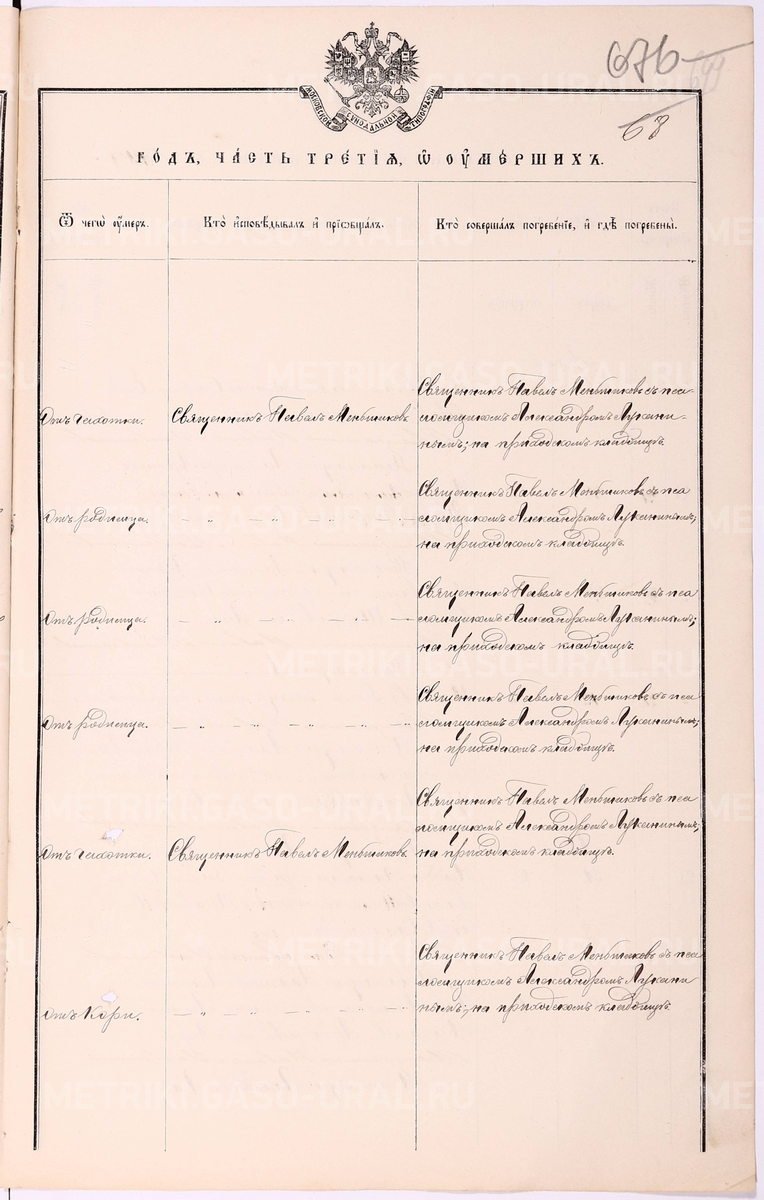 676
68
МОСКОВСКОЙ СѴНОДАЛЬНОЙ ТИПОГРАФІИ
ГО́ДЪ, ЧА́СТЬ ТРЕ́ТІѦ, Ѡ ОУ҆МЕ́РШИХЪ.
Ѿ чегѡ̀ оу҆́меръ.
Кто̀ и҆сповѣ́дывалъ и҆ прїѡбща́лъ.
Кто̀ соверша́лъ погребе́нїе, и҆ гдѣ̀ погребены̀.
Отъ чахотки.
Священникъ Павелъ Меньшиковъ
Священникъ Павелъ Меньшиковъ съ пса-
ломщикомъ Александромъ Лукани-
нымъ; на приходскомъ кладбищѣ.
Отъ родимца.
— „ — „ — „ — „ —
Священникъ Павелъ Меньшиковъ съ пса
ломщикомъ Александромъ Луканинымъ;
на приходскомъ кладбищѣ.
Отъ родимца.
— „ — „ — „ — „ —
Священникъ Павелъ Меньшиковъ съ пса
ломщикомъ Александромъ Луканинымъ;
на приходскомъ кладбищѣ.
Отъ родимца.
— „ — „ — „ — „ —
Священникъ Павелъ Меньшиковъ съ пса
ломщикомъ Александромъ Луканинымъ;
на приходскомъ кладбищѣ.
Отъ чахотки.
Священникъ Павелъ Меньшиковъ.
Священникъ Павелъ Меньшиковъ съ пса
ломщикомъ Александромъ Луканинымъ;
на приходскомъ кладбищѣ.
Отъ кори.
— „ — „ — „ — „ —
Священникъ Павелъ Меньшиковъ съ пса
ломщикомъ Александромъ Лукани
нымъ; на приходскомъ кладбищѣ.
METRIKI.GASO-URAL.RU